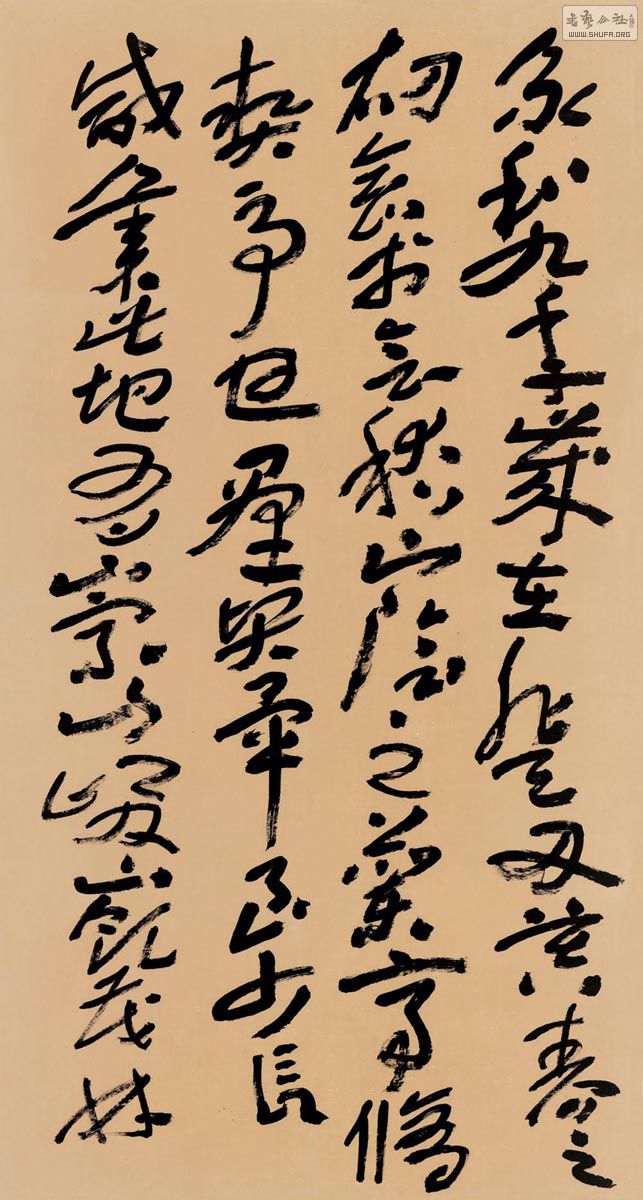 永和九年歲在癸丑暮春之
初會於會稽山陰之蘭亭脩
禊事也羣賢畢至少長
咸集此地有崇山峻嶺茂林
書藝公社
WWW.SHUFA.ORG